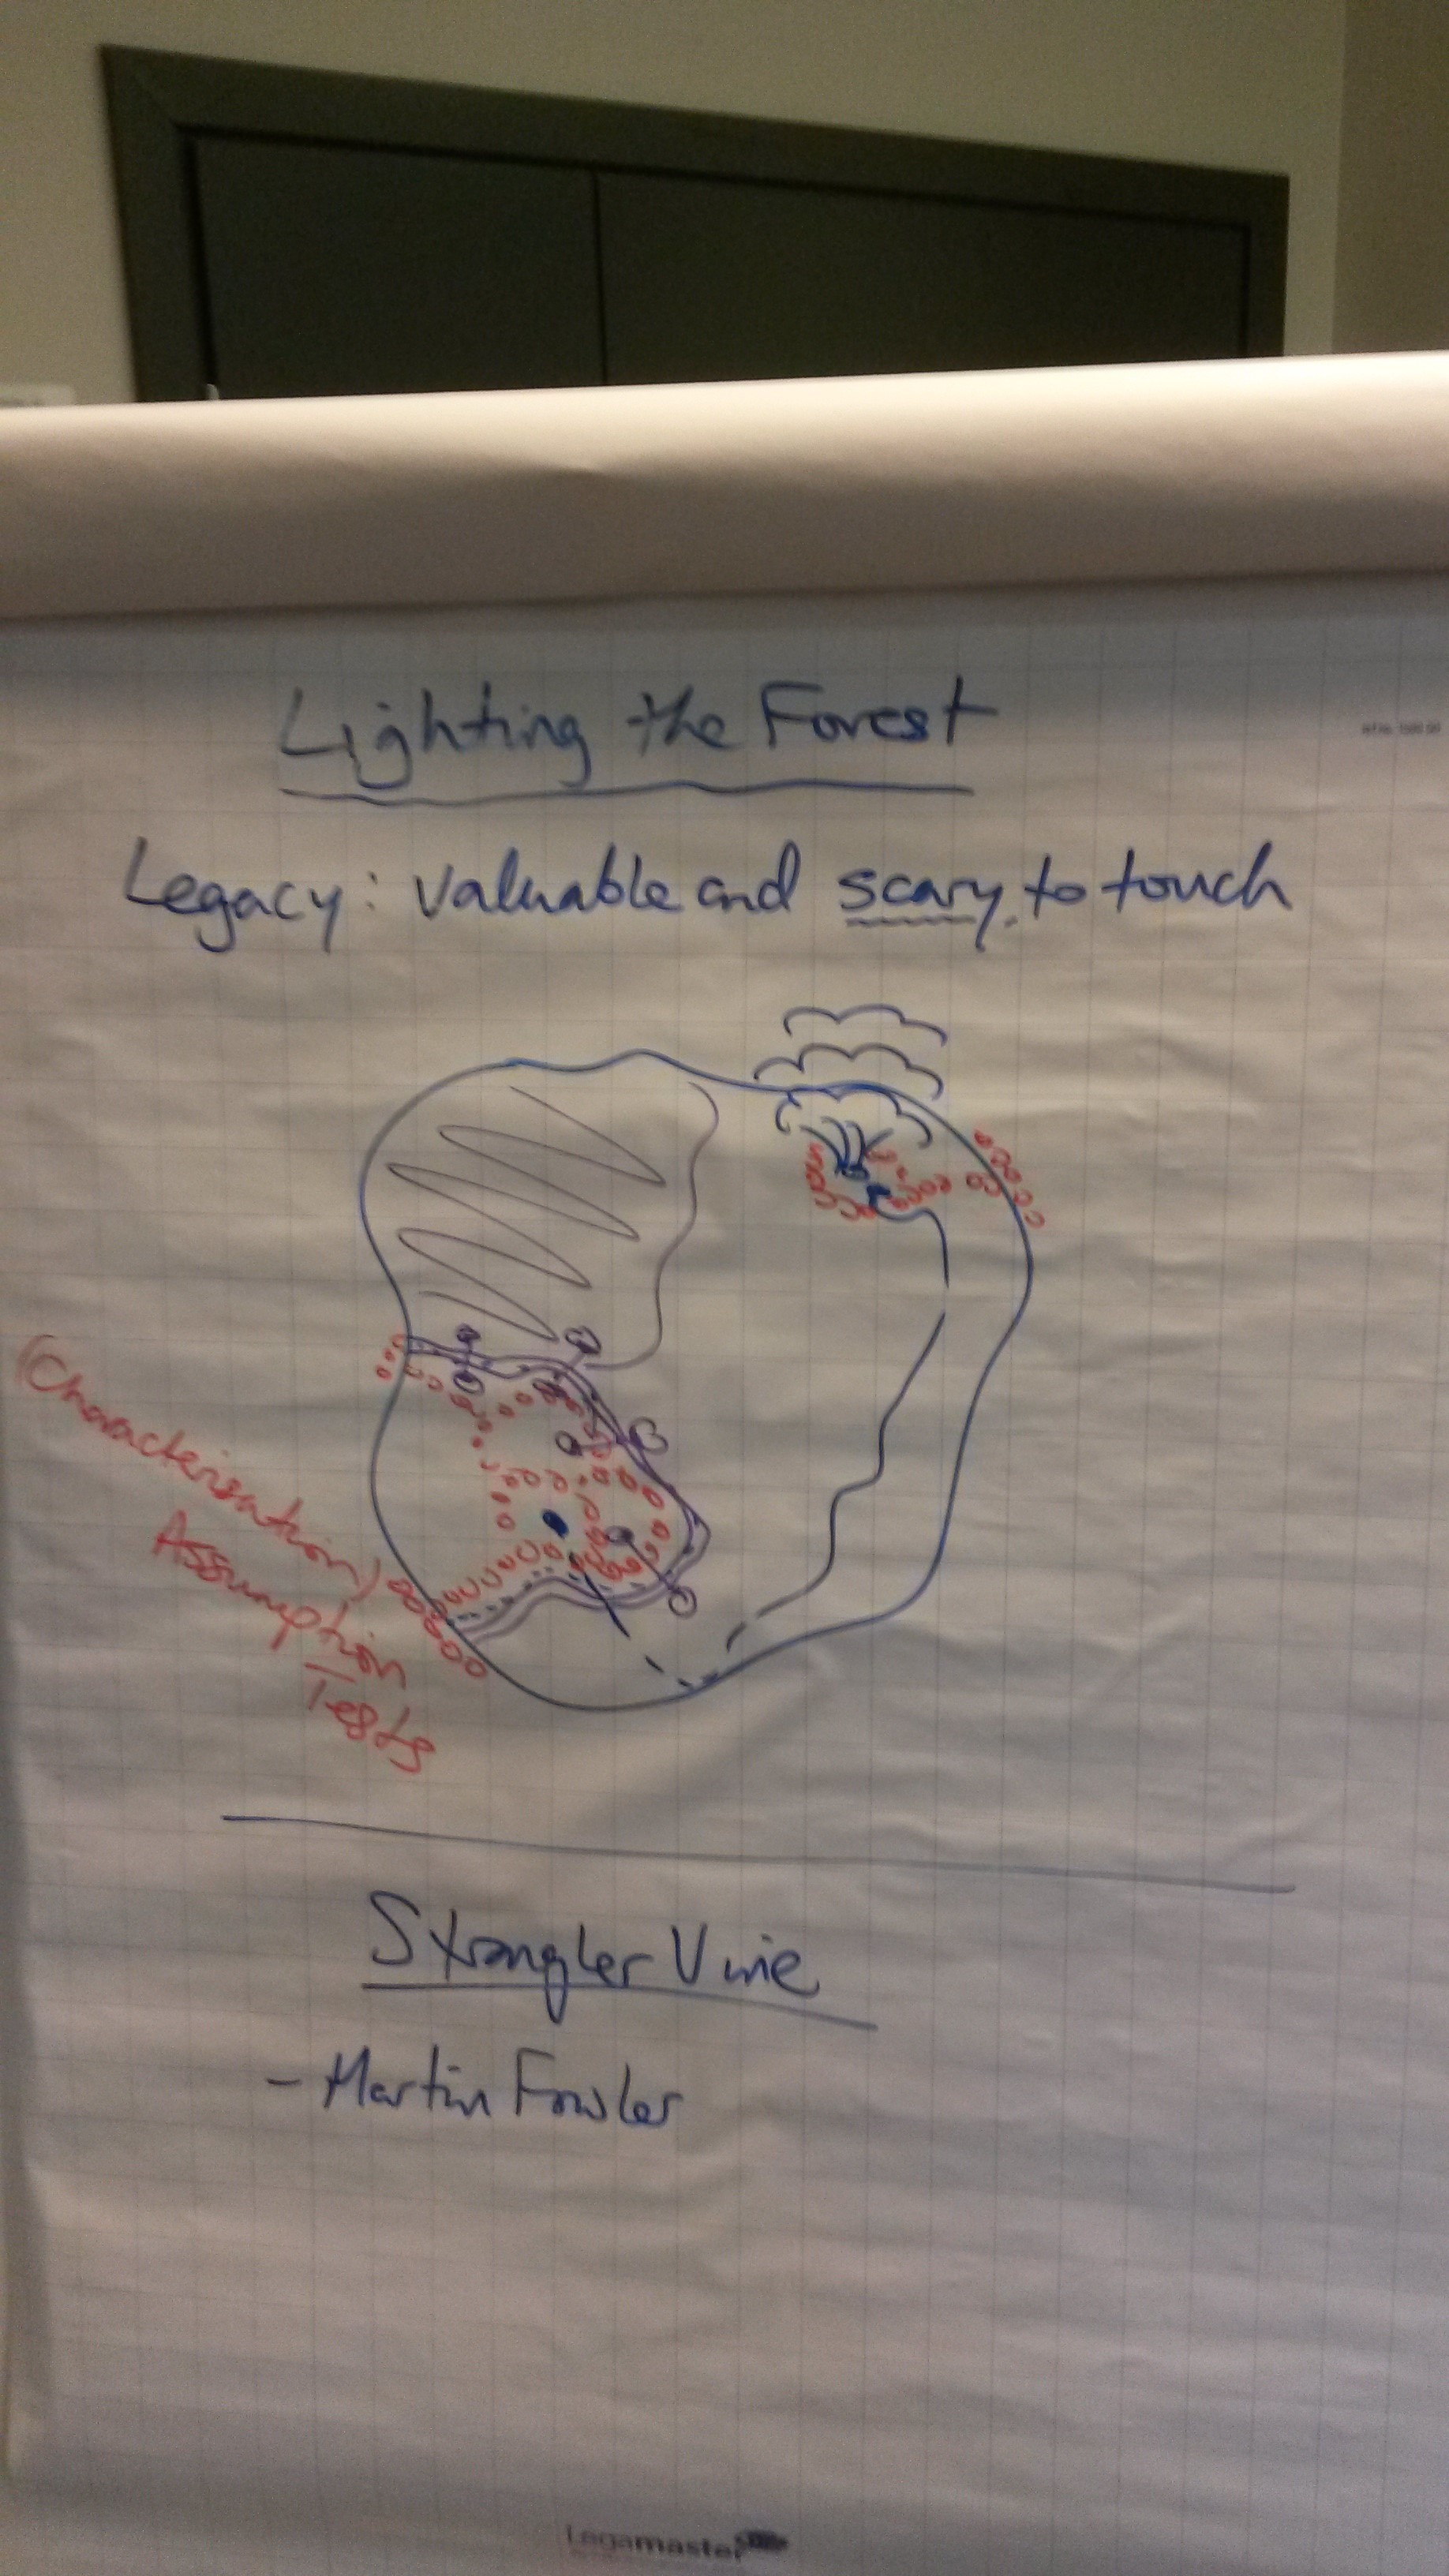 Lighting the Forest
Legacy: valuable and scary to touch
(Characterisation)
Assumption
Tests
Strangler Vine
- Martin Fowler
Legamaster